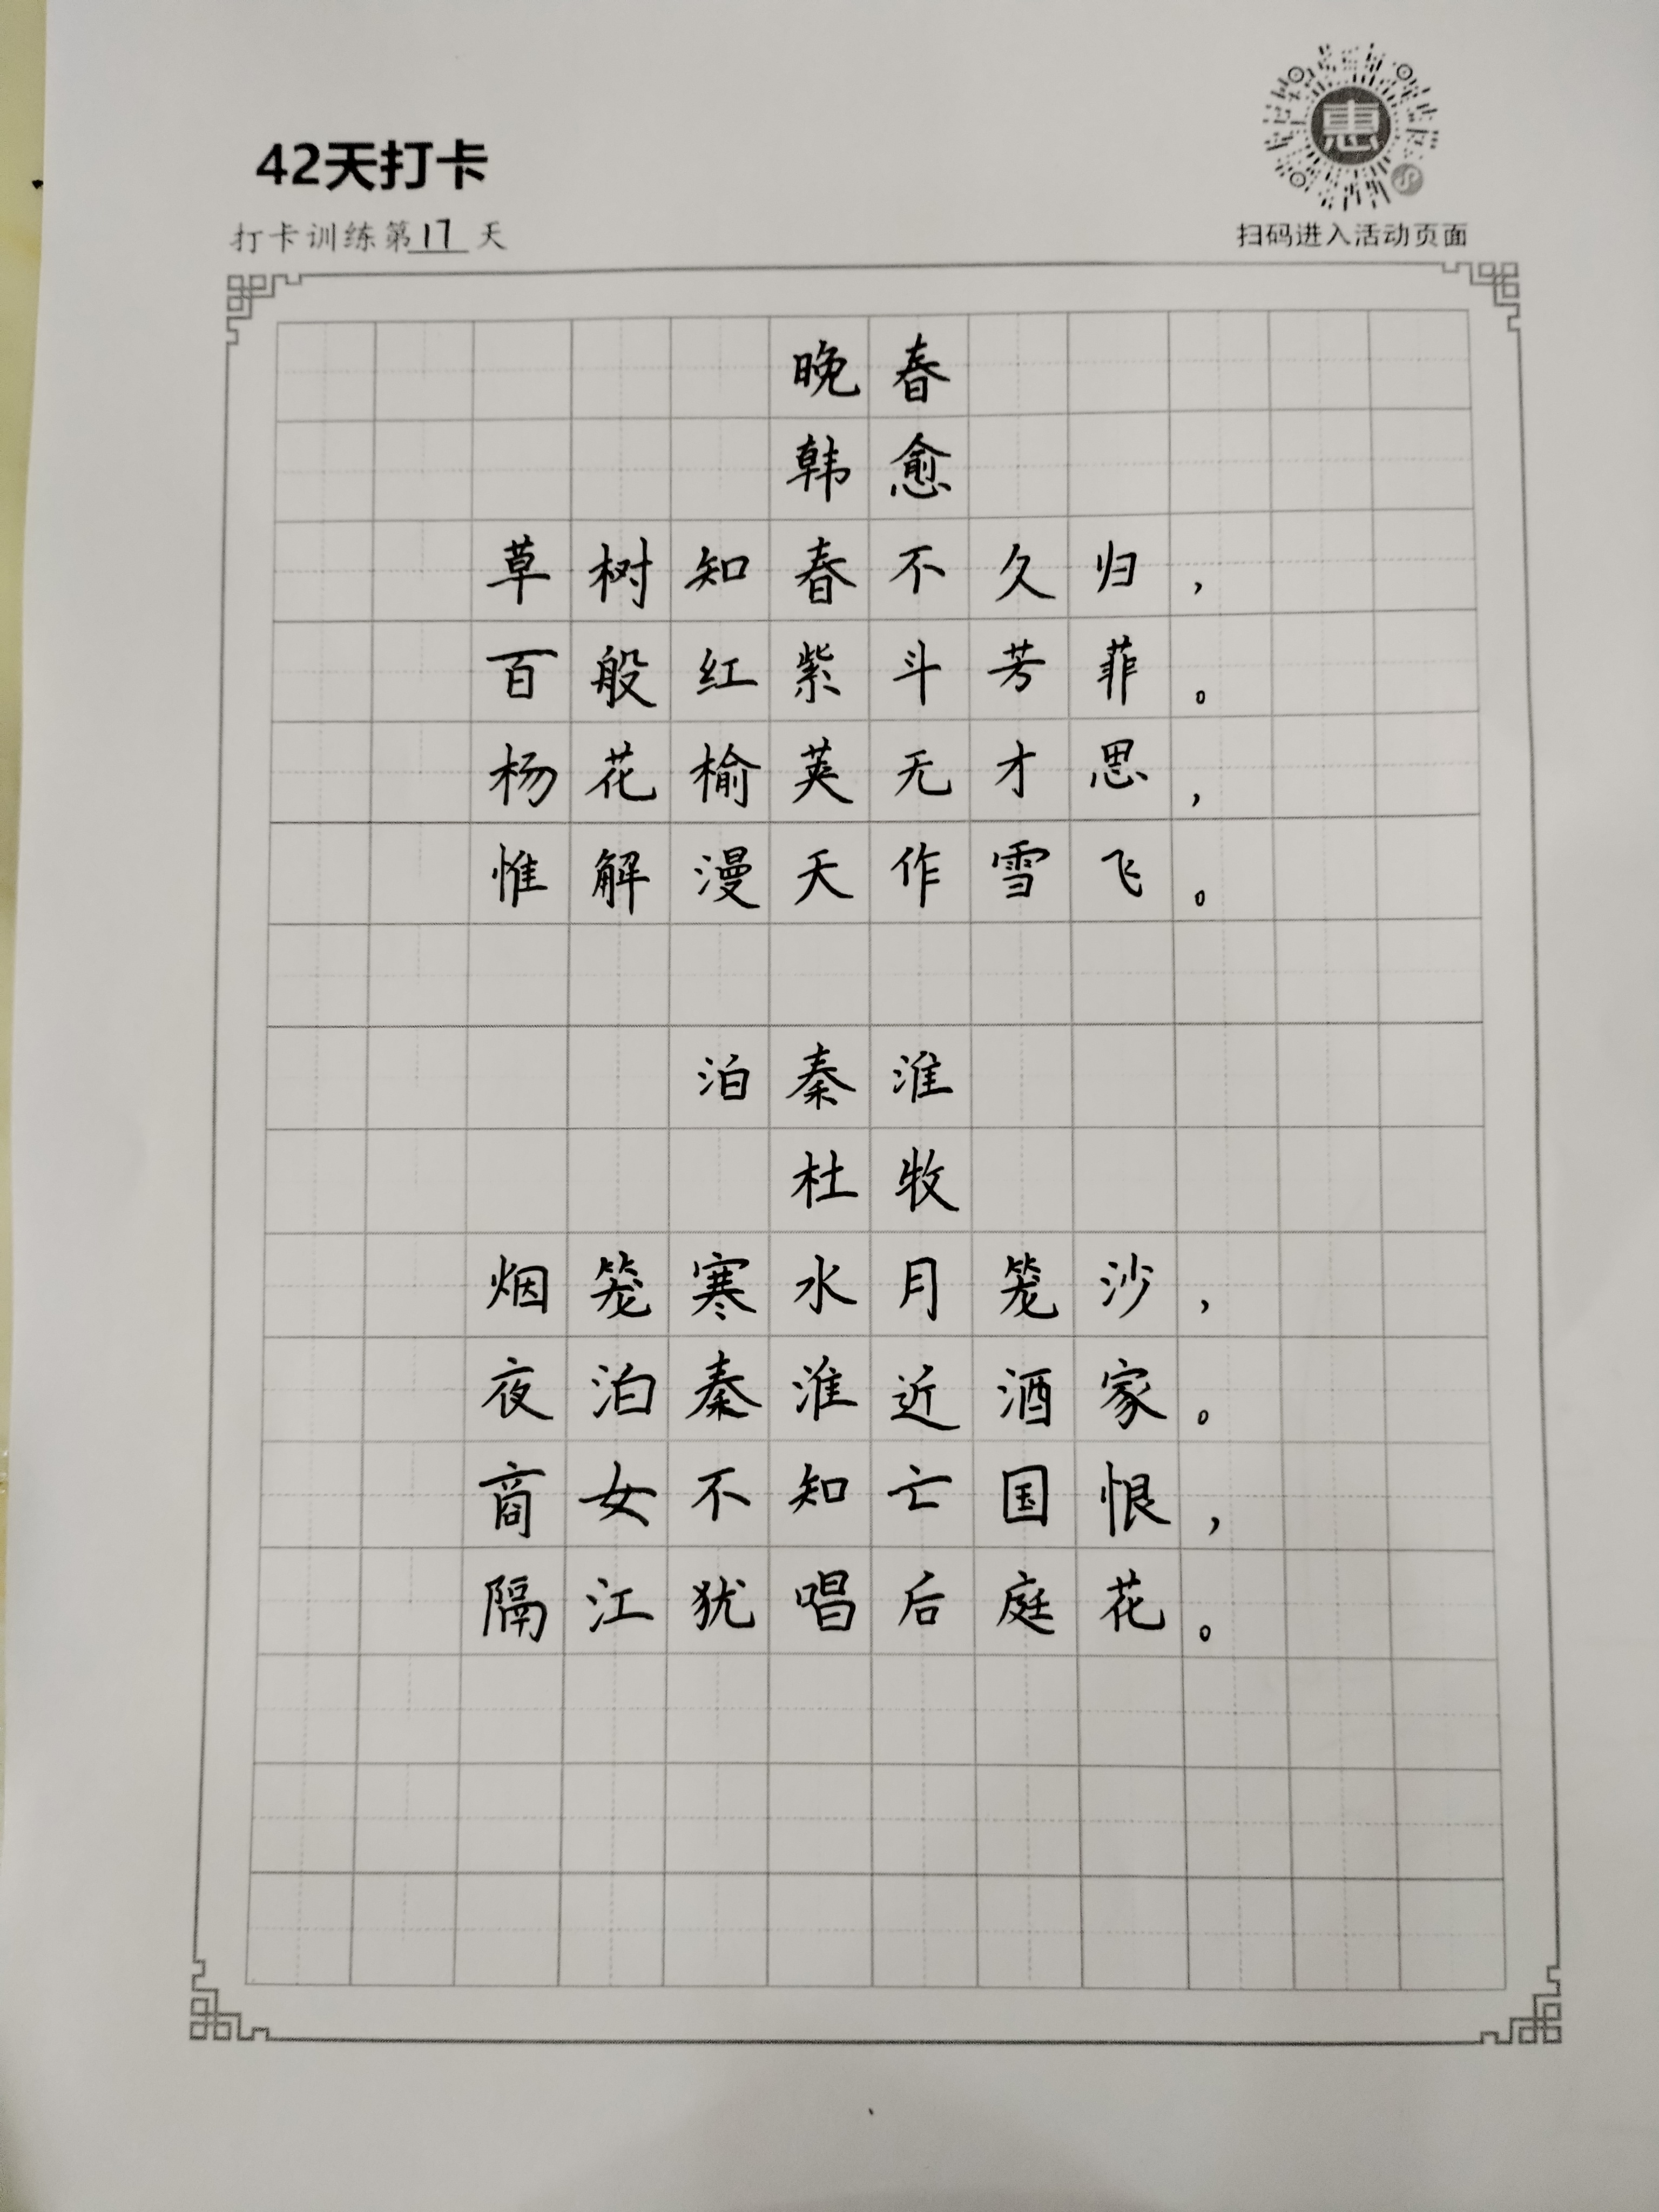 惠
42天打卡
打卡训练第17天
扫码进入活动页面
晚春
韩愈
草树知春不久归，
百般红紫斗芳菲。
杨花榆荚无才思，
惟解漫天作雪飞。
泊秦淮
杜牧
烟笼寒水月笼沙，
夜泊秦淮近酒家。
商女不知亡国恨，
隔江犹唱后庭花。